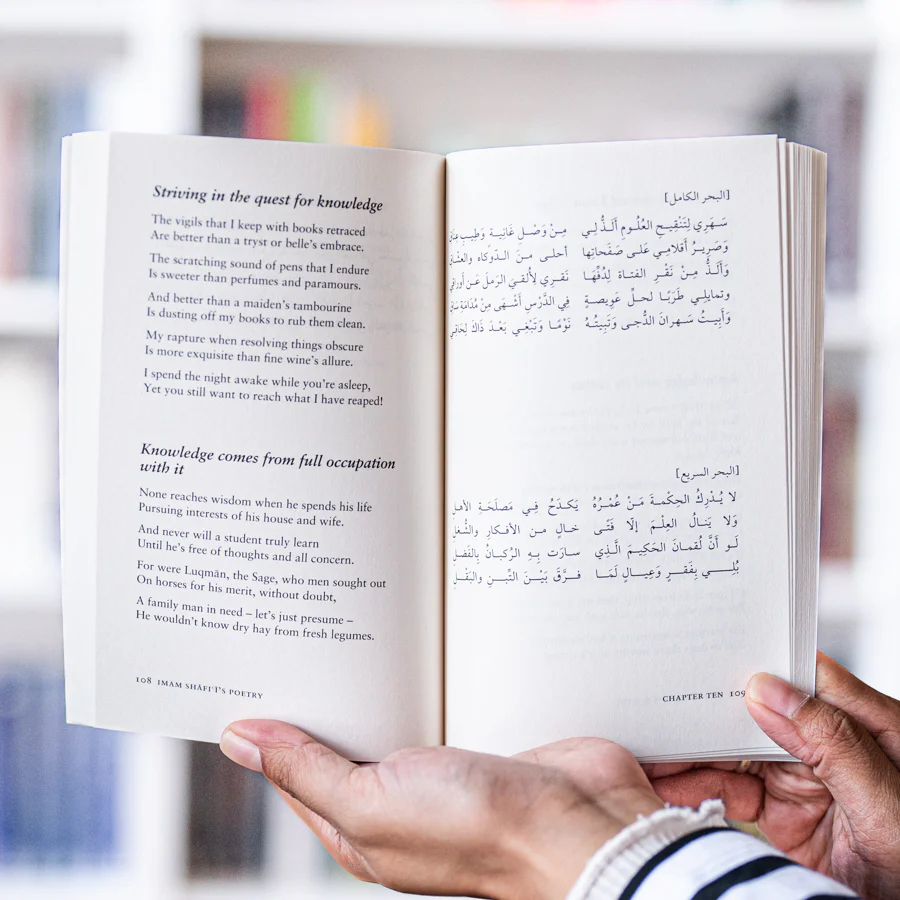 Striving in the quest for knowledge
The vigils that I keep with books retraced
Are better than a tryst or belle's embrace.
The scratching sound of pens that I endure
Is sweeter than perfumes and paramours.
And better than a maiden's tambourine
Is dusting off my books to rub them clean.
My rapture when resolving things obscure
Is more exquisite than fine wine's allure.
I spend the night awake while you're asleep,
Yet you still want to reach what I have reaped!
Knowledge comes from full occupation
with it
None reaches wisdom when he spends his life
Pursuing interests of his house and wife.
And never will a student truly learn
Until he's free of thoughts and all concern.
For were Luqmān, the Sage, who men sought out
On horses for his merit, without doubt,
A family man in need – let's just presume –
He wouldn't know dry hay from fresh legumes.
108 IMAM SHĀFIʿĪ'S POETRY
[البحر الكامل]
سَهَرِي لِتَنْقِيحِ العُلُومِ أَلَذُّ لِي مِنْ وَصْلِ غَانِيَةٍ وَطِيبِ
وَصَرِيرُ أَقلامِي عَلى صَفَحَاتِها أحلى مِنَ الدَّوكاءِ والعشّاقِ
وَأَلَذُّ مِنْ نَقْرِ الفتاةِ لِدُفِّهَا نَقْرِي لِأُلقيَ الرملَ عَن أوراقي
وتمايلي طَرَبًا لحلِّ عَويصةٍ فِي الدَّرْسِ أَشْهَى مِنْ مُدَامَةِ
وَأَبِيتُ سَهرانَ الدُّجى وَتَبِيتُهُ نَوْمًا وَتَبْغِي بَعْدَ ذَاكَ لِحَاقِي
[البحر السريع]
لا يُدْرِكُ الحِكْمةَ مَنْ عُمْرُهُ يَكدَحُ فِي مَصلَحَةِ الأهلِ
وَلا يَنالُ العِلْمَ إلّا فَتًى خالٍ من الأفكارِ والشُّغلِ
لَو أَنَّ لُقمانَ الحَكِيمَ الَّذِي سارَت بِهِ الرُكبانُ بِالفَضلِ
بُلِي بِفَقرٍ وَعِيالٍ لَمَا فرَّقَ بَيْنَ التِّبنِ والبَقْلِ
CHAPTER TEN 109